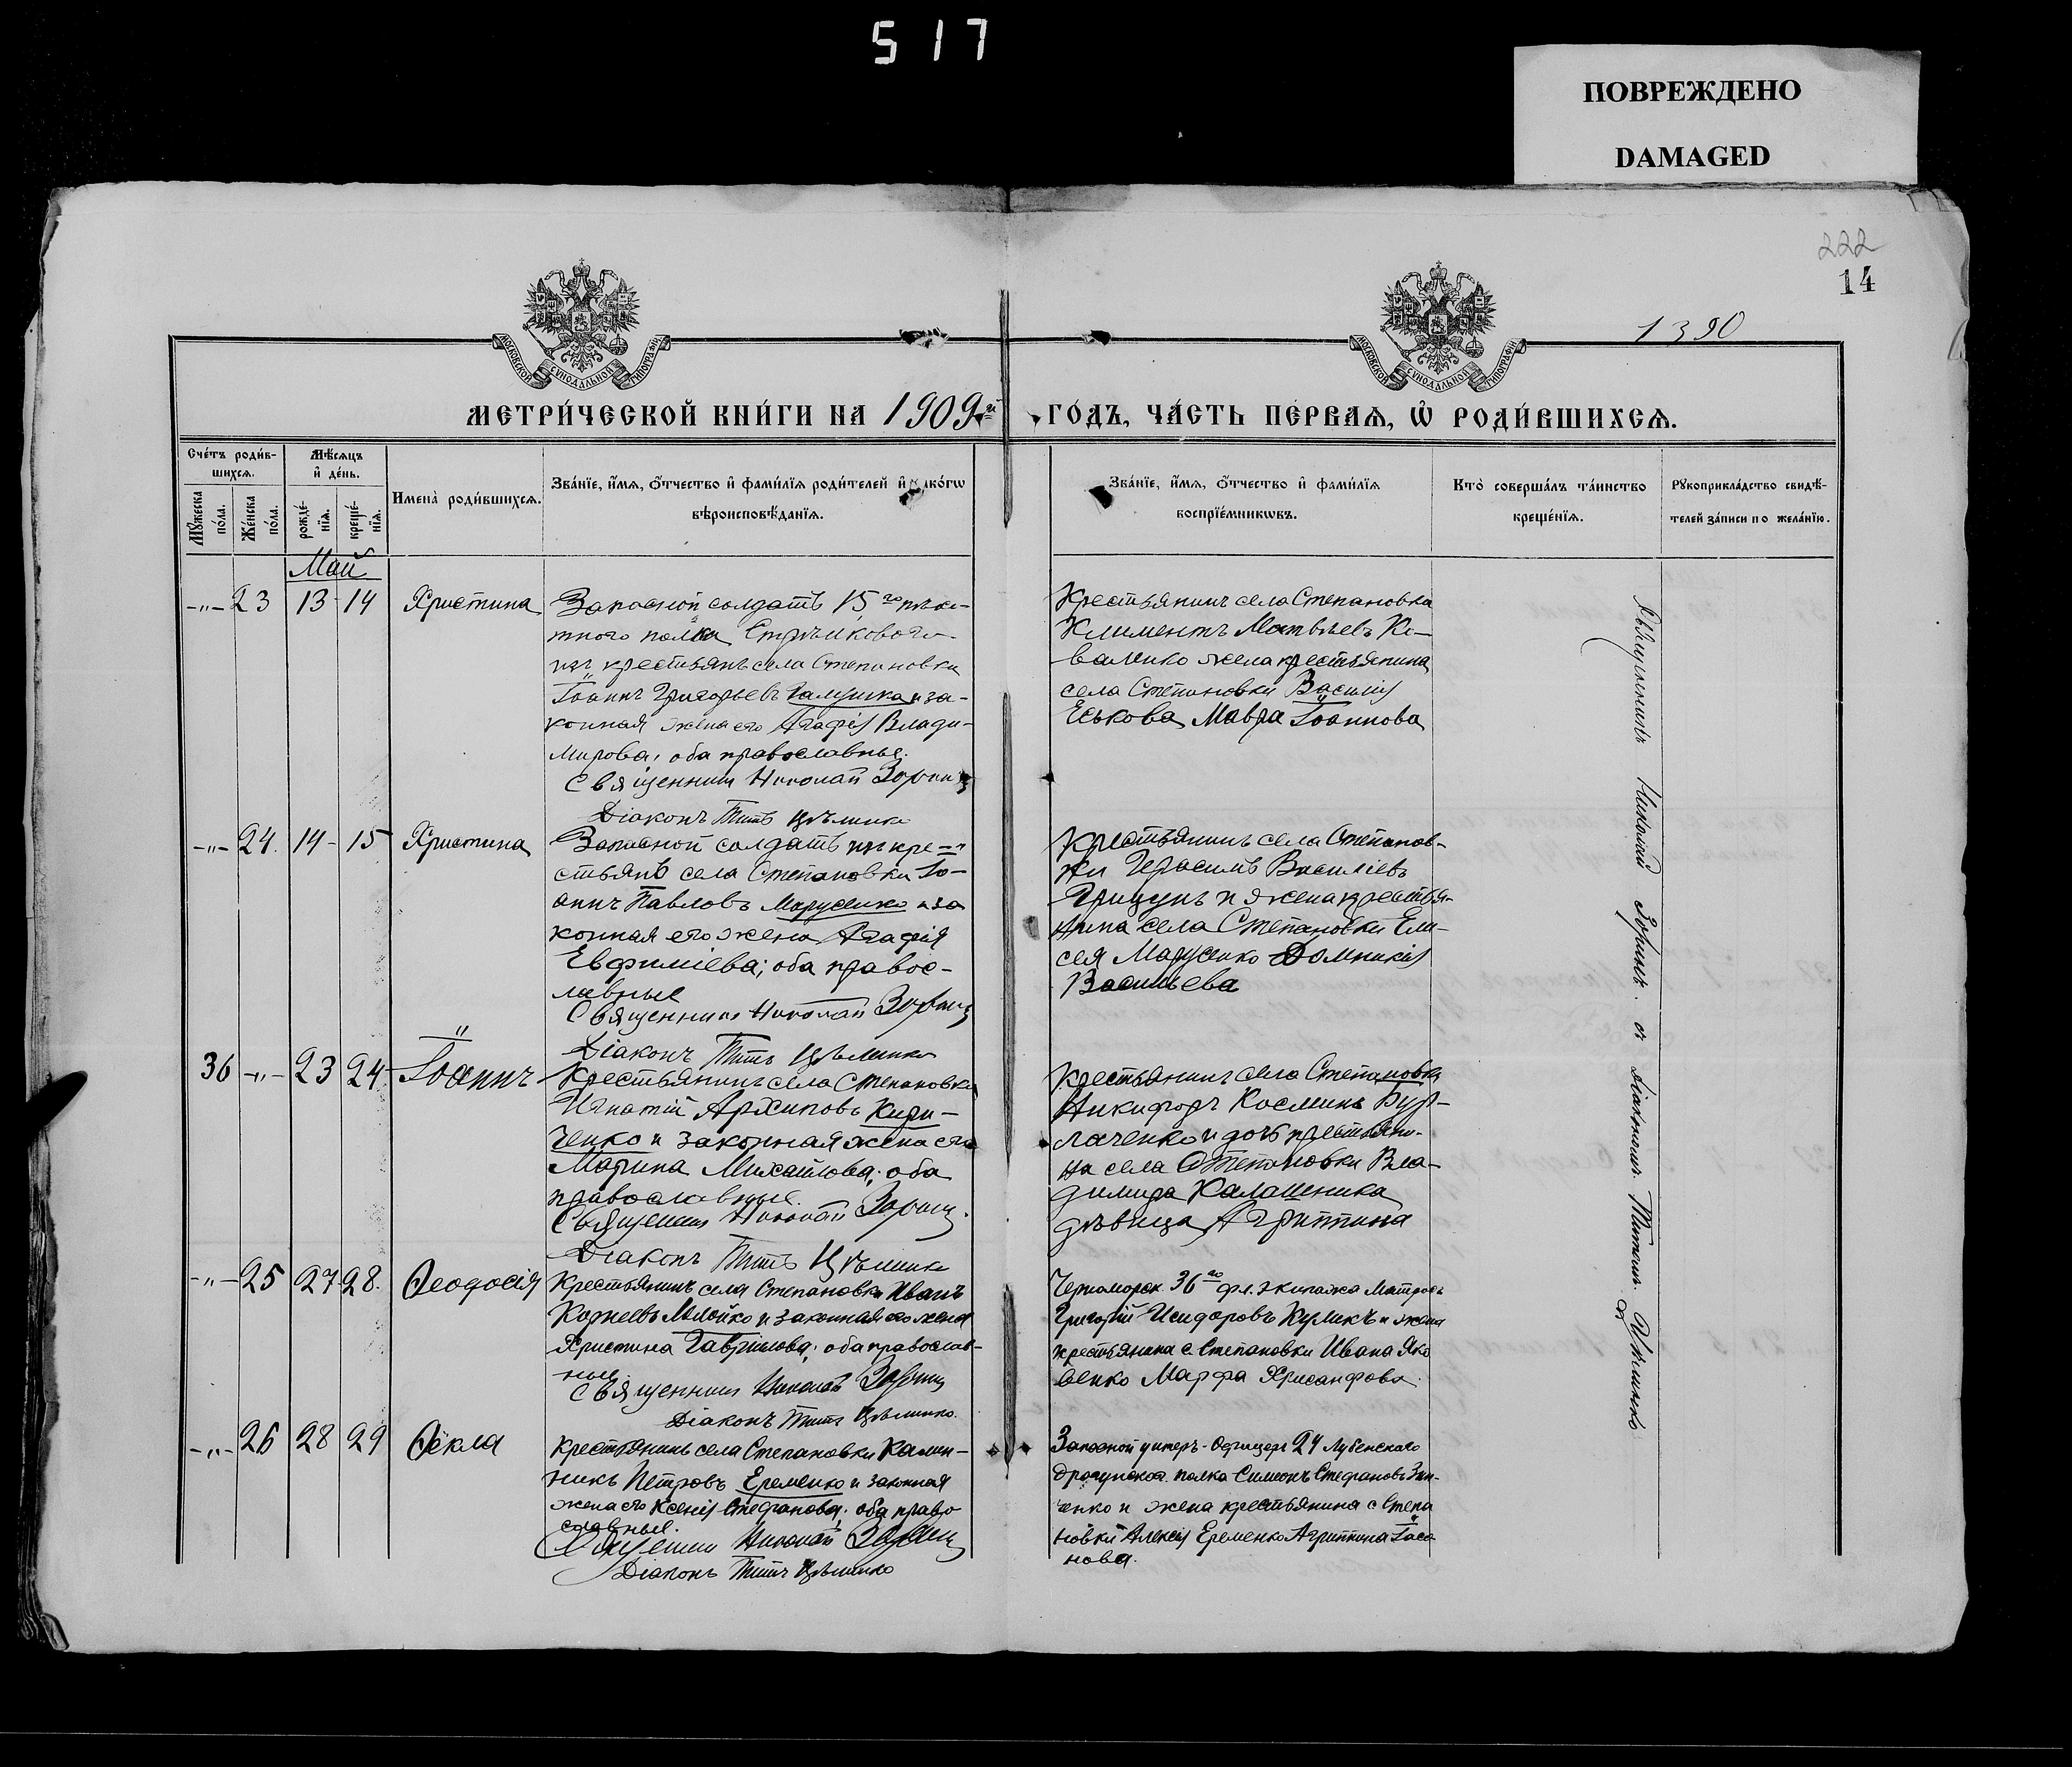 517
ПОВРЕЖДЕНО
DAMAGED
222
14
1390
МОСКОВСКОЙ СУНОДАЛЬНОЙ ТИПОГРАФІИ
МОСКОВСКОЙ СУНОДАЛЬНОЙ ТИПОГРАФІИ
МЕТРИ́ЧЕСКОЙ КНИ́ГИ НА 1909й ГО́ДЪ, ЧА́СТЬ ПЕ́РВАѦ, Ѽ РОДИ́ВШИХСѦ.
Сче́тъ роди́в-
шихсѧ.
Мꙋ́жеска по́ла.
Же́нска по́ла.
Мѣ́сѧцъ
и҆ де́нь.
рожде́-
нїѧ.
креще́-
нїѧ.
Имена̀ роди́вшихсѧ.
Зва́нїе, и҆́мѧ, о҆́тчество и҆ фами́лїѧ роди́телей и҆ како́гѡ
вѣроисповѣ́данїѧ.
Зва́нїе, и҆́мѧ, о҆́тчество и҆ фами́лїѧ
воспрїе́мникѡвъ.
Кто̀ соверша́лъ та́инство
креще́нїѧ.
Рꙋкоприкла́дство свидѣ́-
телей за́писи по жела́нїю.
Май
-"- 23 13 14 Христина
Запасной солдатъ 15го пѣхо-
тного полка
изъ крестьянъ села Степановки
Іоаннъ Григорьевъ Галушка и за-
конная жена его Агафія Влади-
мирова, оба православные.
Священникъ Николай Зоринъ
Діаконъ Титъ Цѣлинко
Крестьянинъ села Степановки
Климентъ Матвѣевъ Ко-
валенко жена крестьянина
села Степановки Василія
Еськова Мавра Іоаннова
-"- 24. 14 - 15 Христина
Запасной солдатъ изъ кре-
стьянъ села Степановки Іо-
аннъ Павловъ Марусенко и за
конная его жена Агафія
Евфиміева; оба правос-
лавные
Священникъ Николай Зоринъ
Діаконъ Титъ Цѣлинко
Крестьянинъ села Степанов-
ки Герасимъ Василіевъ
Грицунъ и жена крестья-
нина села Степановки Ели-
сея Марусенко Домникія
Васильева
36 -"- 23 24 Іоаннъ
Крестьянинъ села Степановки
Игнатій Архиповъ Кири-
ченко и законная жена его
Марина Михайлова; оба
православные.
Священникъ Николай Зоринъ.
Діаконъ Титъ Цѣлинко
Крестьянинъ села Степановки
Никифоръ Косминъ Бур-
лаченко и дочь крестьяни-
на села Степановки Вла-
димира Калашника
дѣвица Агриппина
-"- 25 27 28. Ѳеодосія
Крестьянинъ села Степановки Иванъ
Корнеевъ и законная его жена
Христина Гаврилова; оба православ-
ные.
Священникъ Николай Зоринъ
Діаконъ Титъ Цѣлинко.
Черноморск. 36го фл. экипажа Матросъ
Григорій Исидоровъ Куликъ и жена
крестьянина с Степановки Ивана Яко
венко Марфа Хрисанфова.
-"- 26 28 29 Ѳекла
Крестьянинъ села Степановки Калин-
никъ Петровъ Еременко и законная
жена его Ксенія Стефанова; оба право
славные.
Священникъ Николай Зоринъ
Діаконъ Титъ Цѣлинко
Запасной унтеръ-офицеръ 24 Лубенскаго
Драгунскаго полка Симеонъ Стефановъ Зин-
ченко и жена крестьянина с Степа
новки Алексія Еременко Агриппина Іасо
нова.
Священникъ Николай Зоринъ. съ діакономъ. Титомъ. Цѣлинко